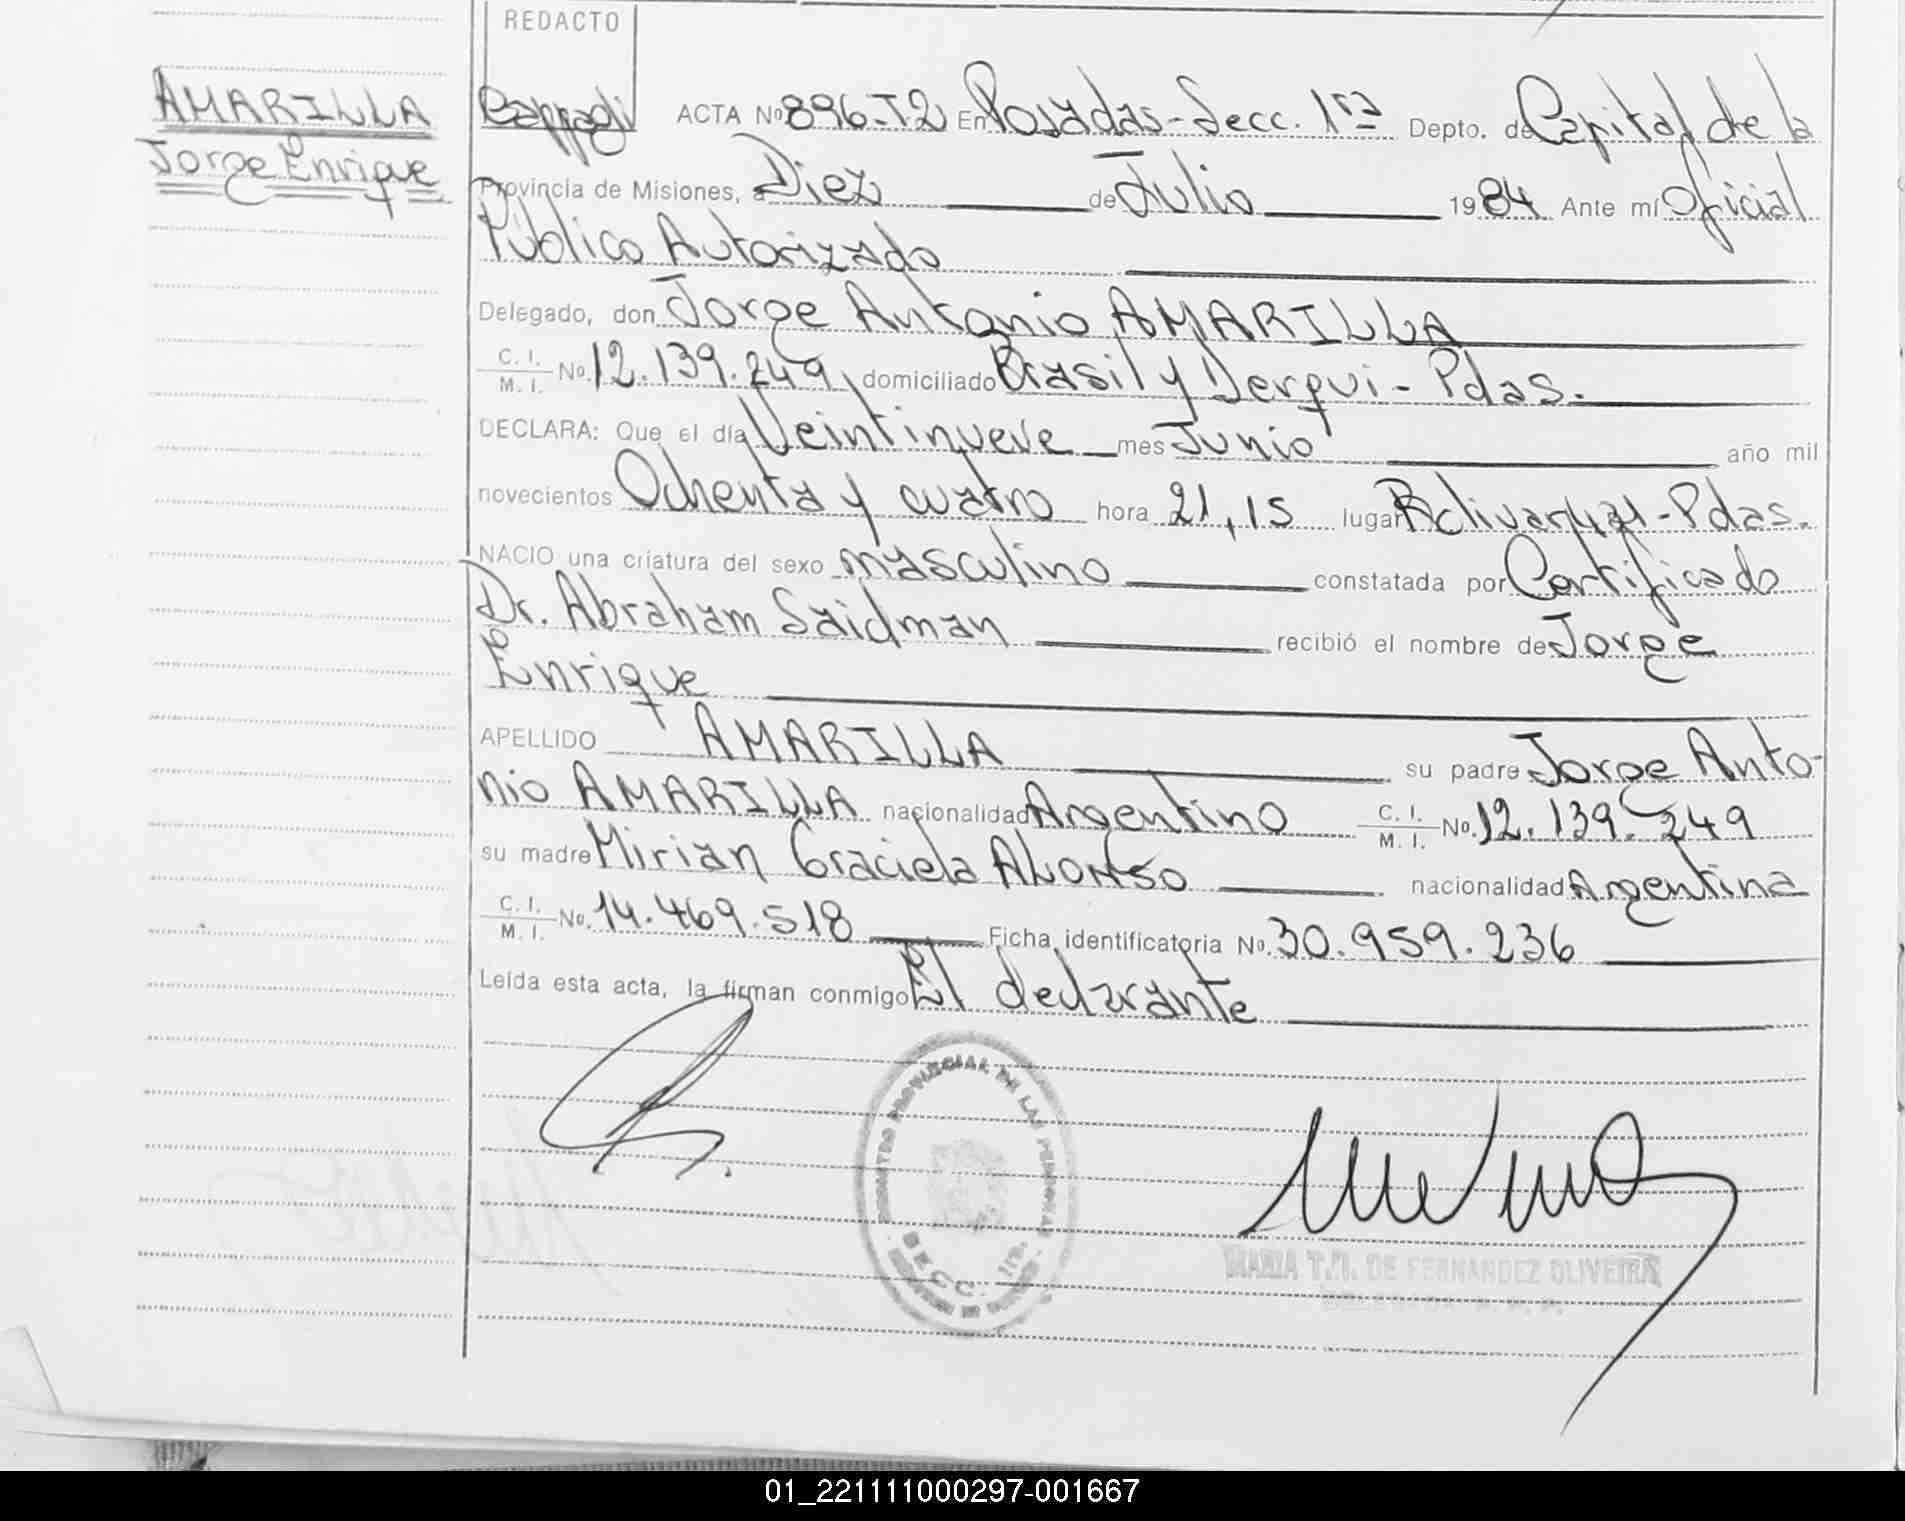 REDACTO
AMARILLA
Jorge Enrique
ACTA Nº 896-T2 En Posadas-Secc. 1ra Depto. de Capital de la
Provincia de Misiones, a Diez de Julio 1984 Ante mí Oficial
Público Autorizado
Delegado, don Jorge Antonio AMARILLA
C. I. M. I. No. 12.139.249, domiciliado Brasil y Derqui - Pdas.
DECLARA: Que el día Veintinueve mes Junio año mil
novecientos Ochenta y cuatro hora 21,15 lugar Bolivar - Pdas.
NACIO una criatura del sexo masculino constatada por Certificado
Dr. Abraham Saidman recibió el nombre de Jorge
Enrique
APELLIDO AMARILLA su padre Jorge Anto-
nio AMARILLA nacionalidad Argentino C. I. M. I. No. 12.139.249
su madre Mirian Graciela ALONSO nacionalidad Argentina
C. I. M. I. No. 14.469.518 Ficha identificatoria No. 30.959.236
Leída esta acta, la firman conmigo El declarante
PROVINCIAL DE LAS PERSONAS
SECC. 1ra.
MARIA T. DE FERNANDEZ OLIVEIRA
01_221111000297-001667